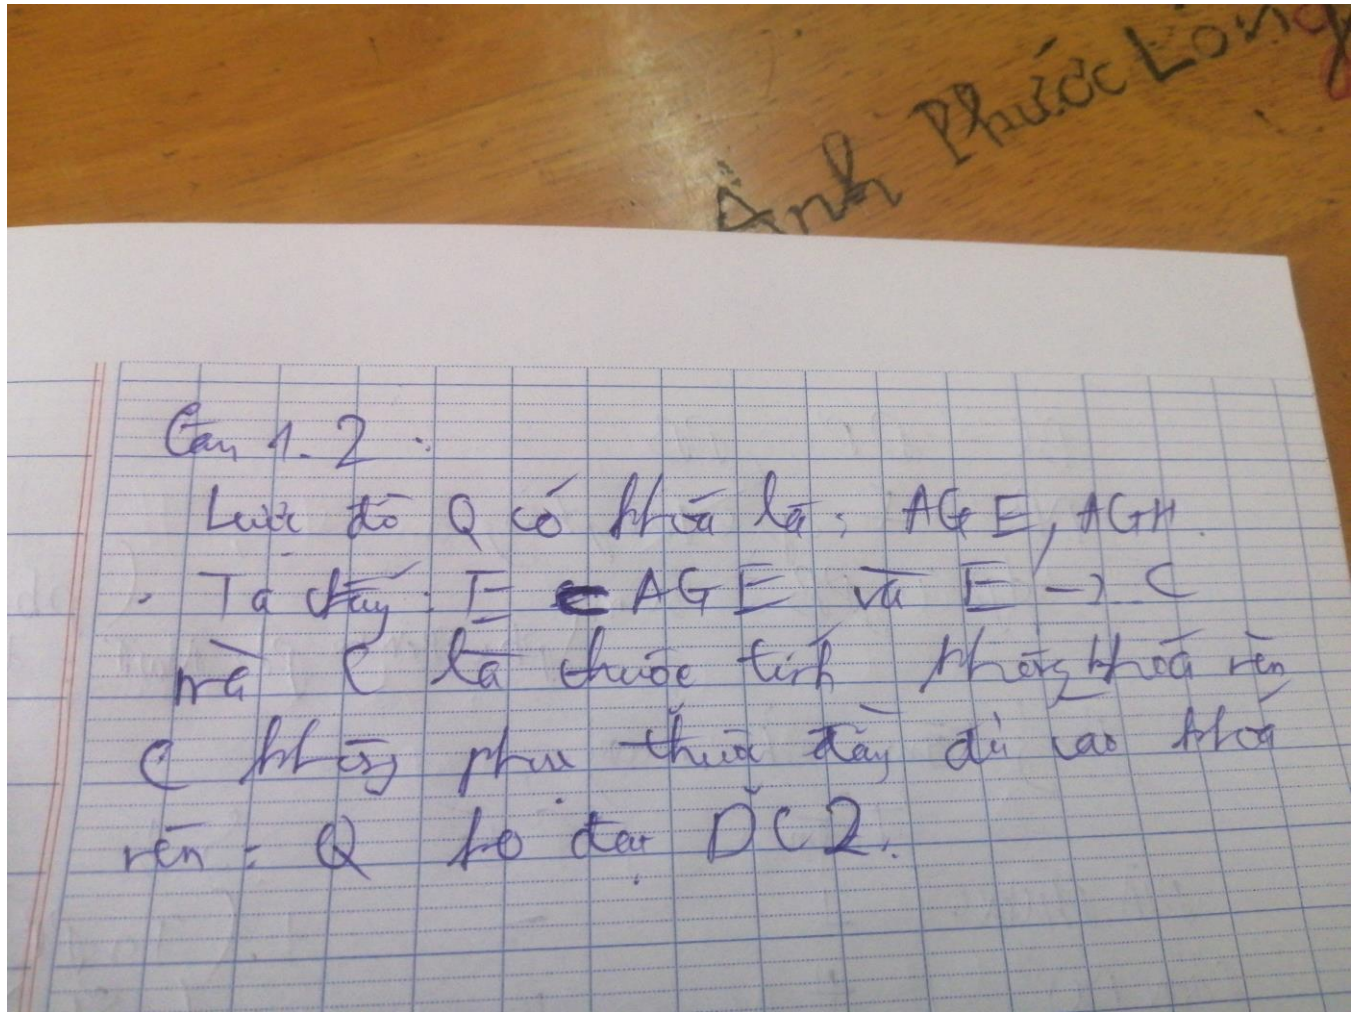 Ành Phước Long
Câu 1.2.
Lược đồ Q có khóa là: AGE, AGH.
. Ta thấy: E ⊂ AGE và E -> C
mà C là thuộc tính không khoá nên
C không phụ thuộc đầy đủ vào khoá
nên: Q ko đạt DC2.